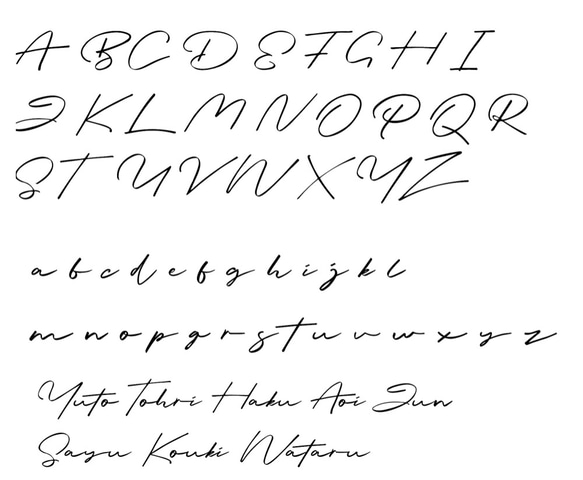 A B C D E F G H I
J K L M N O P Q R
S T U V W X Y Z
a b c d e f g h i j k l
m n o p q r s t u v w x y z
Yuto Tohri Haku Aoi Jun
Sayu Kouki Wataru